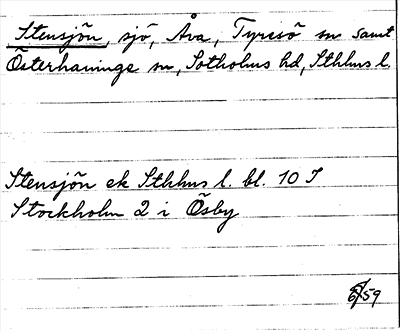 Stensjön, sjö, Åva, Tyresö sn samt
Österhaninge sn, Sotholms hd, Sthlms l.
Stensjön ek Sthlms l. bl. 10 I
Stockholm 2 i Ösby
59